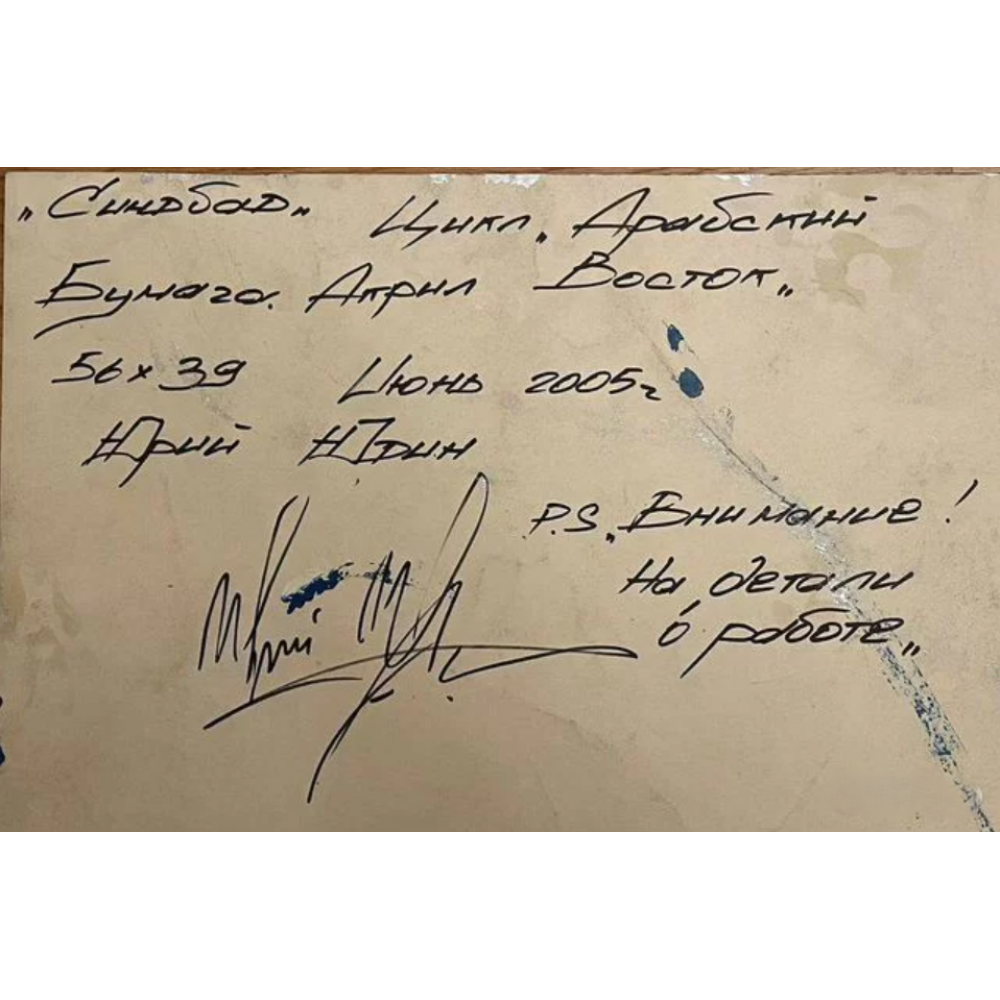 „Синдбад„ Цикл „Арабский
Бумага. Акрил Восток„
56 x 39 Июнь 2005г
Юрий Юрин
P.S „Внимание!
На детали
в работе„